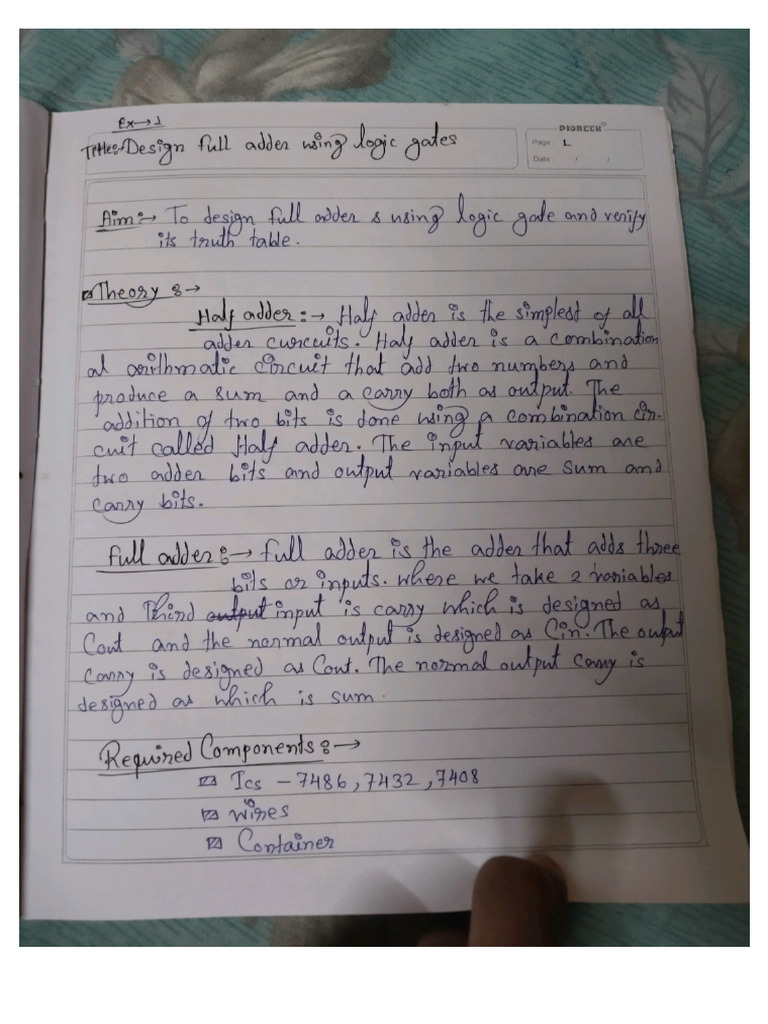 Ex→1
Title:- Design full adder using logic gates
PIONEER
Page 1
Date / /
Aim:→ To design full adder s using logic gate and verify
its truth table.
Theory :→
Half adder:→ Half adder is the simplest of all
adder curcuits. Half adder is a combination
al arithmatic circuit that add two numbers and
produce a sum and a carry both as output. The
addition of two bits is done using a combination cir-
cuit called Half adder. The input variables are
two adder bits and output variables are sum and
carry bits.
Full adder:→ Full adder is the adder that adds three
bits or inputs. where we take 2 variables
and Third output input is carry which is designed as
Cout and the normal output is designed as Cin. The output
carry is designed as Cout. The normal output carry is
designed as which is sum.
Required Components:→
Ics - 7486, 7432, 7408
Wires
Container